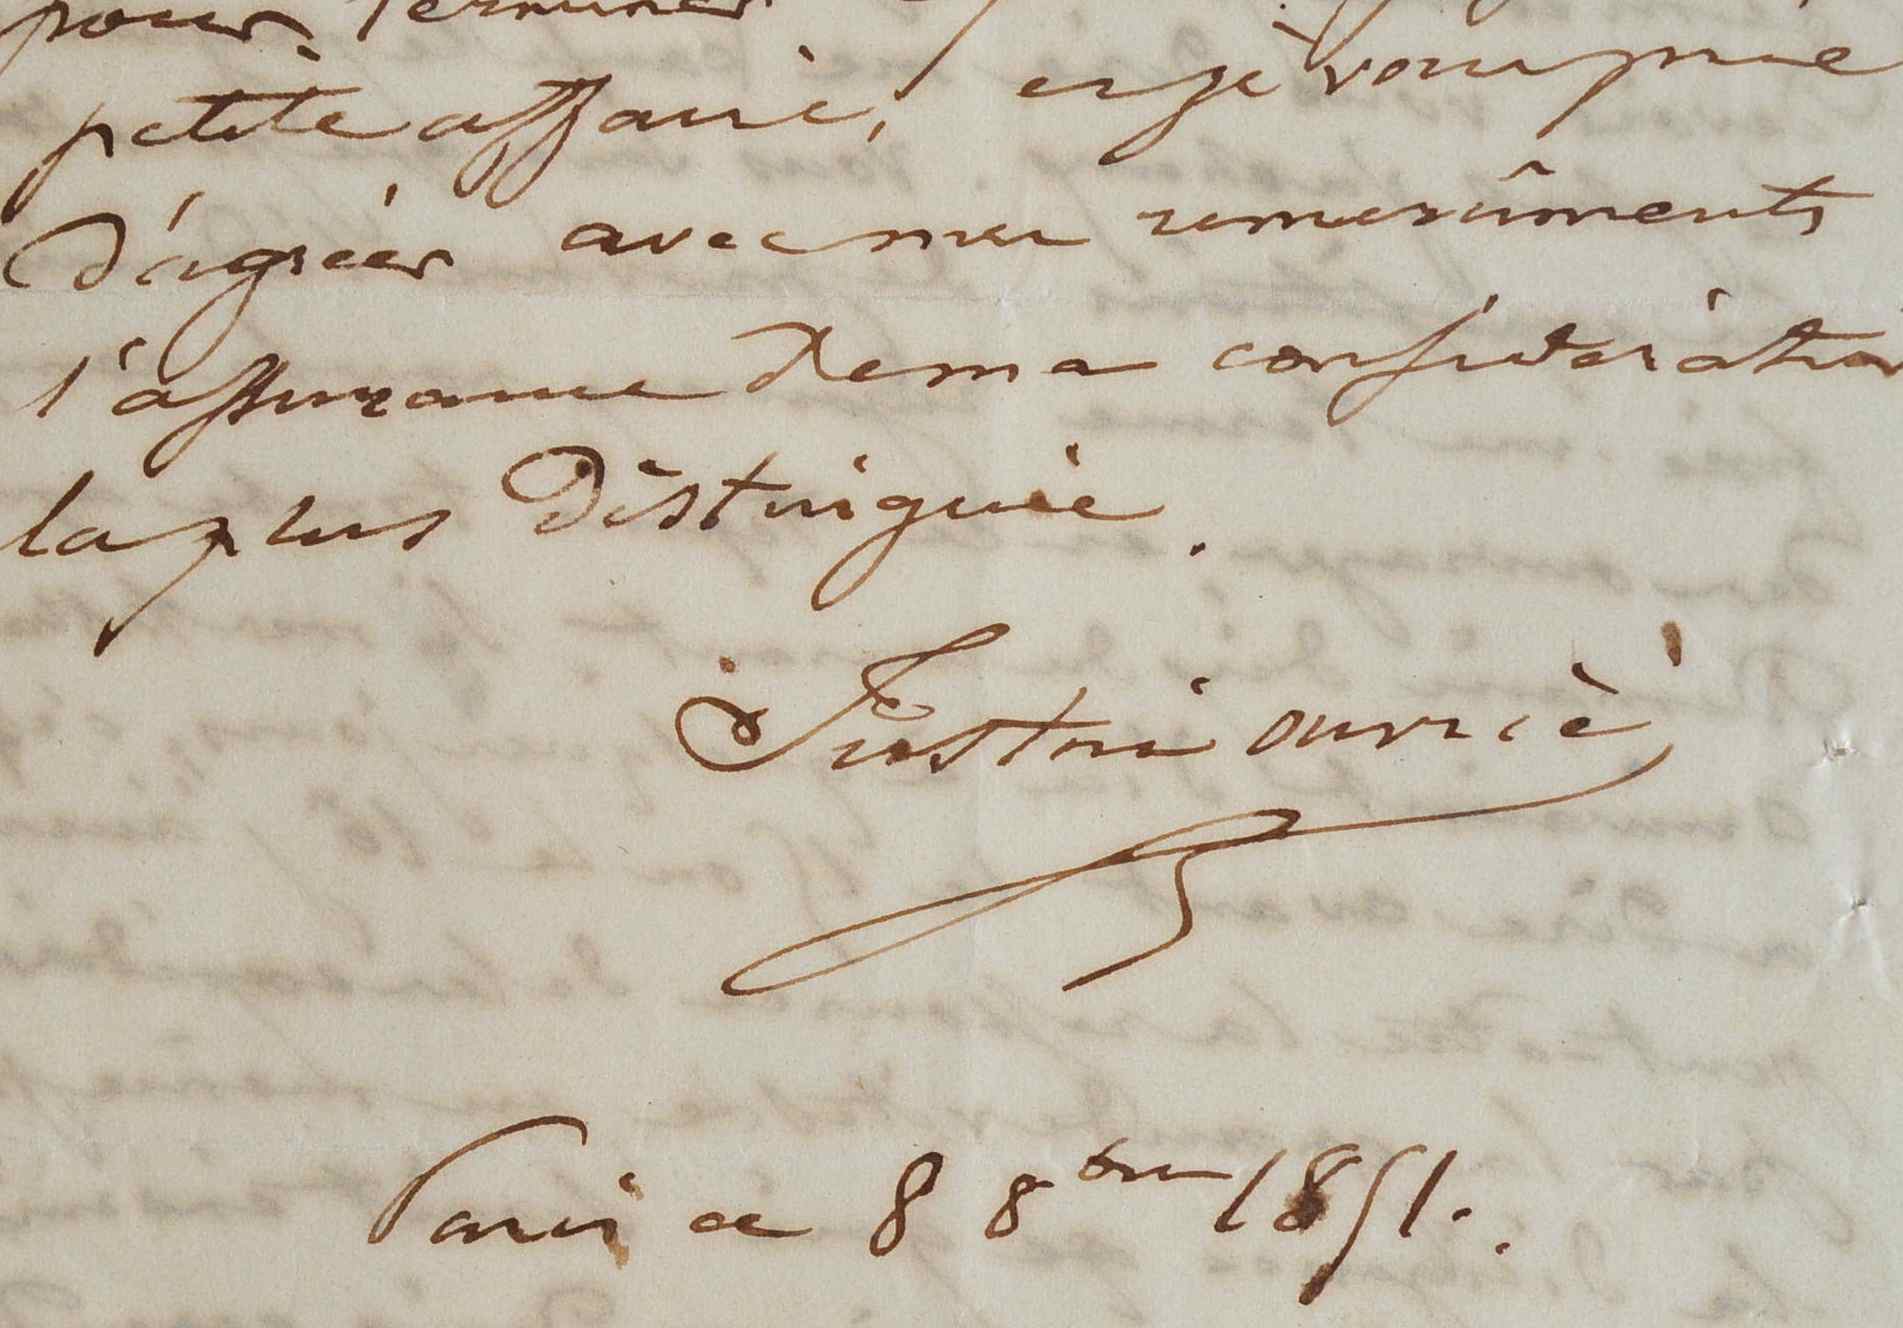 pour terminer
petite affaire, et je vous prie
d'agréer avec mes remercîments
l'assurance de ma considération
la plus distinguée.
Justin Ouvrié
Paris ce 8 8bre 1851.